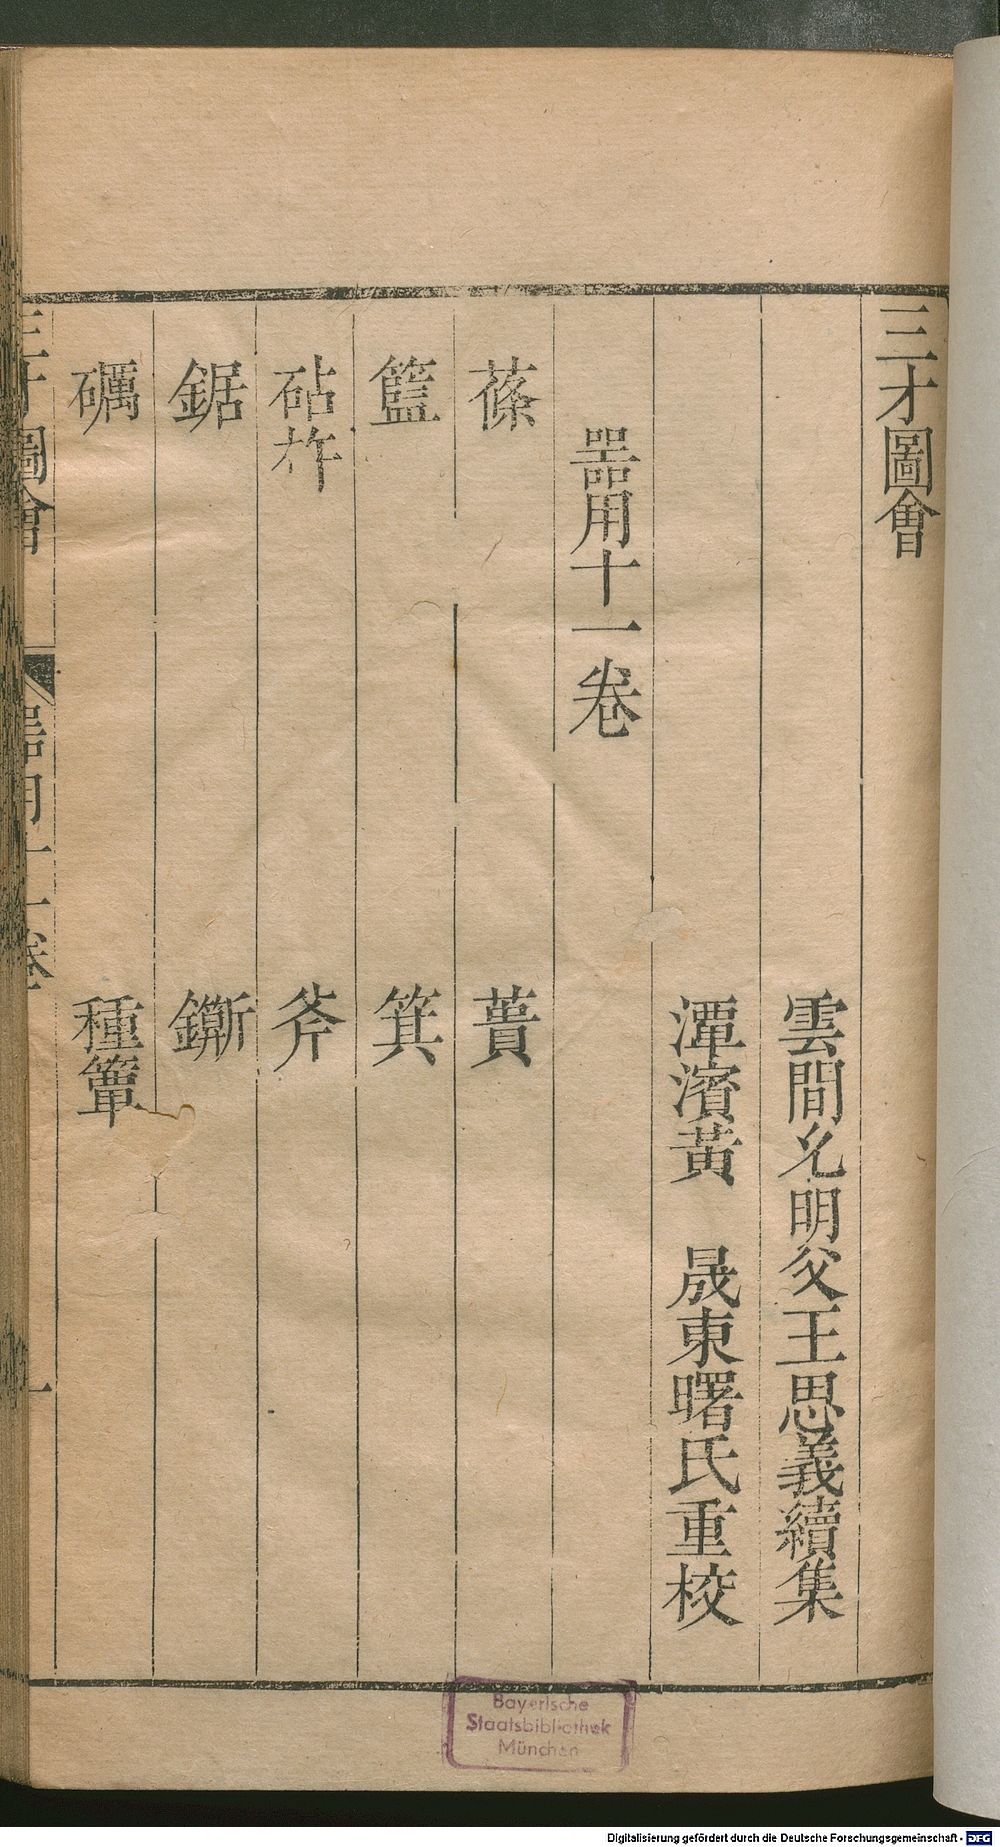 三才圖會
雲間允明父王思義續集
潭濱黃 晟東曙氏重校
器用十一卷
蓧 蕢
籃 箕
砧杵 斧
鋸 鐁
礪 種簞
三才圖會 器用十一卷 一
Bayerische
Staatsbibliothek
München
Digitalisierung gefördert durch die Deutsche Forschungsgemeinschaft - DFG